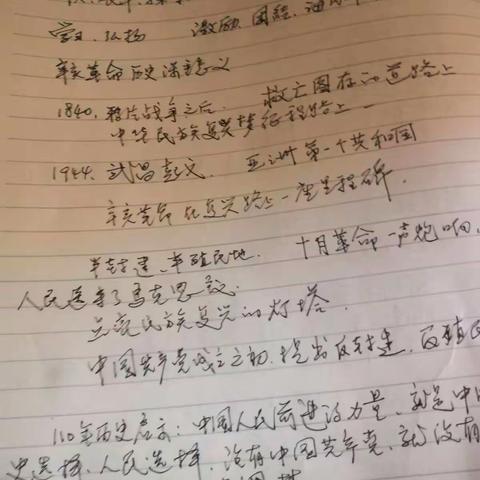 学习、弘扬 激励、团结、
辛亥革命历史深远意义
1840、鸦片战争之后、救亡图存的道路上
中华民族复兴梦征程路上一
1944、武昌起义、亚洲第一个共和国
辛亥革命在复兴路上一座里程碑、
半封建、半殖民地、十月革命一声炮响、
人民送来了马克思
民族复兴的灯塔、
中国共产党成立之初、提出反封建、反殖民
110年历史启示：中国人民前进的力量、就是中
史选择、人民选择、没有中国共产党、就没有